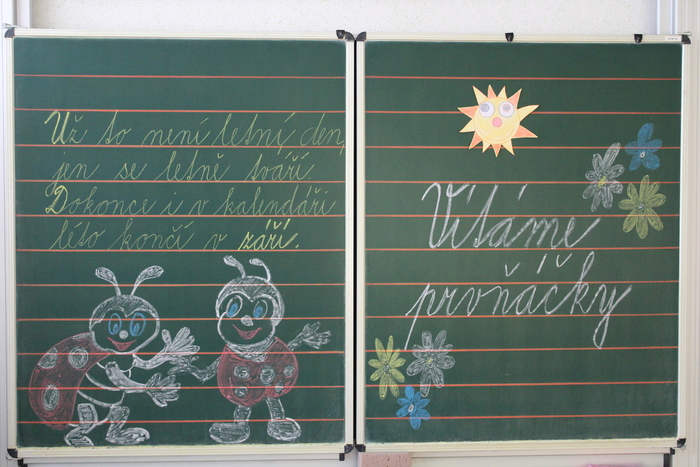 Už to není letní den,
jen se letně tváří.
Dokonce i v kalendáři
léto končí v září.
Vítáme
prvňáčky